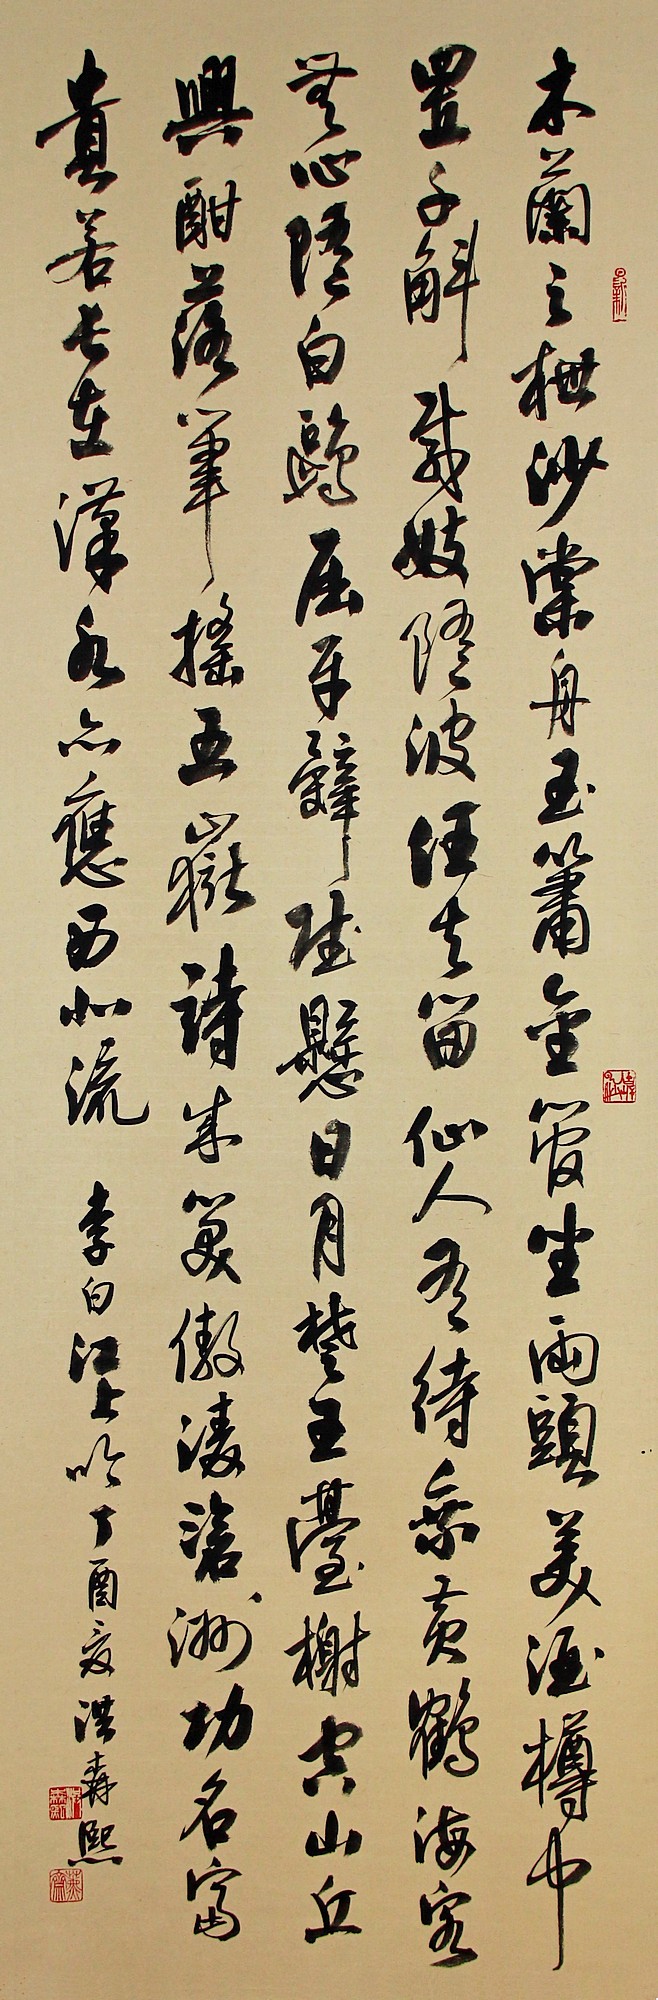 木蘭之枻沙棠舟玉簫金管坐兩頭美酒樽中
置千斛載妓隨波任去留仙人有待乘黃鶴海客
無心隨白鷗屈平辭賦懸日月楚王臺榭空山丘
興酣落筆搖五嶽詩成笑傲淩滄洲功名富
貴若長在漢水亦應西北流 李白江上吟丁酉夏洪森熙